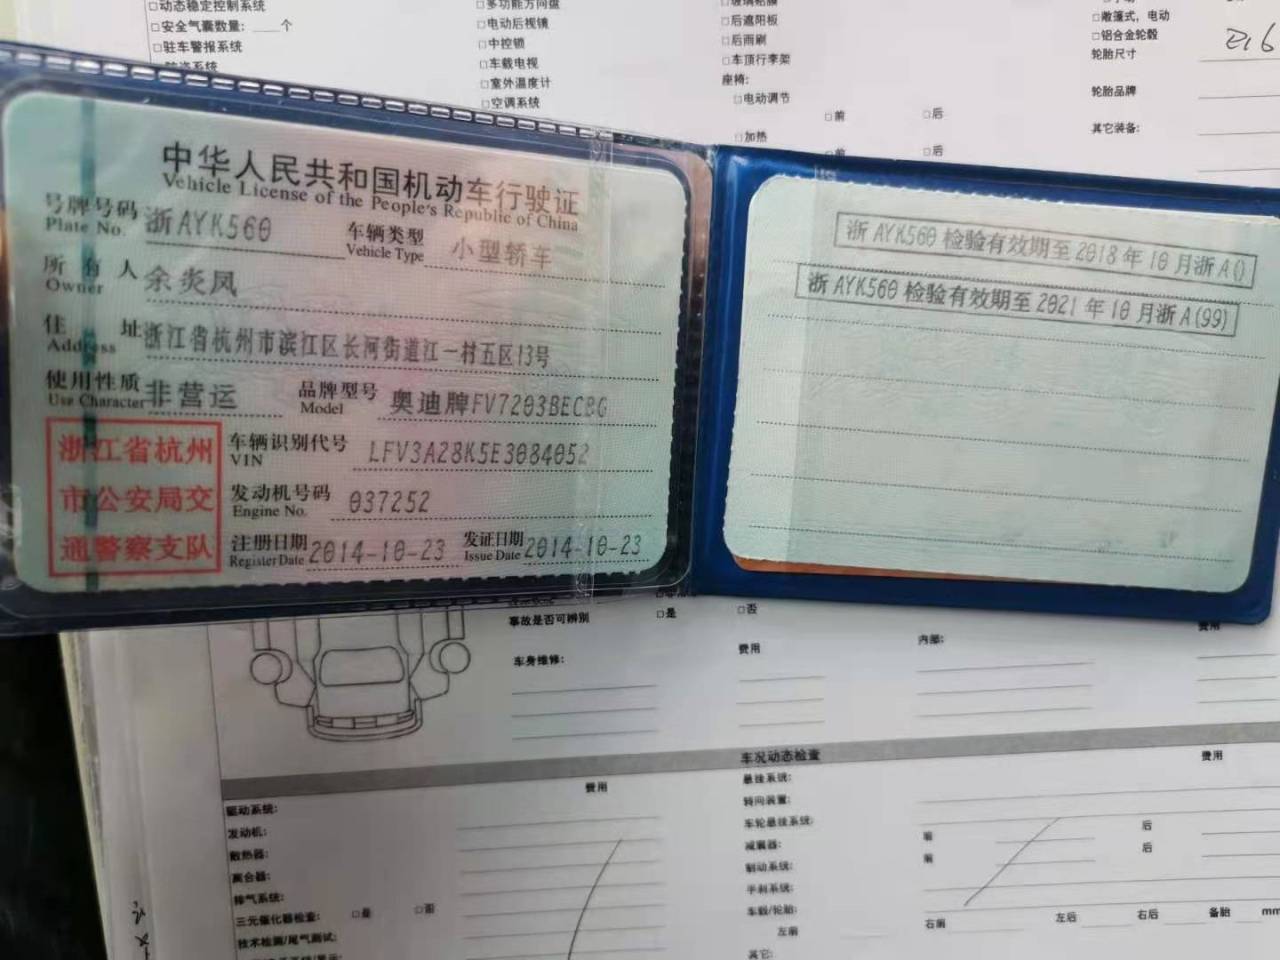 □动态稳定控制系统
□安全气囊数量:____个
□驻车警报系统
□多功能方向盘
□电动后视镜
□中控锁
□车载电视
□室外温度计
□空调系统
□后遮阳板
□后雨刷
□车顶行李架
座椅:
□电动调节
□前 □后
□加热
□前 □后
□敞篷式，电动
□铝合金轮毂
轮胎尺寸
轮胎品牌
其它装备:
中华人民共和国机动车行驶证
Vehicle License of the People's Republic of China
号牌号码 浙AYK560 车辆类型 小型轿车
Plate No. Vehicle Type
所有人 余炎凤
Owner
住址 浙江省杭州市滨江区长河街道江一村五区13号
Address
使用性质 非营运 品牌型号 奥迪牌FV7203BECBG
Use Character Model
浙江省杭州
市公安局交
通警察支队
车辆识别代号 LFV3A28K5E3084052
VIN
发动机号码 037252
Engine No.
注册日期 2014-10-23 发证日期 2014-10-23
Register Date Issue Date
浙AYK560检验有效期至2018年10月浙A()
浙AYK560检验有效期至2021年10月浙A(99)
事故是否可辨别 □是 □否
车身维修: 费用 内部: 费用
车况动态检查
费用 费用
驱动系统:
发动机:
散热器:
离合器:
排气系统:
三元催化器检查: □是 □否
技术检测/尾气测试:
悬挂系统:
转向装置:
车轮悬挂系统: 前 后
减震器: 前 后
制动系统:
手刹系统:
车毂/轮胎:
左前 右前 左后 右后 备胎 mm
其它: